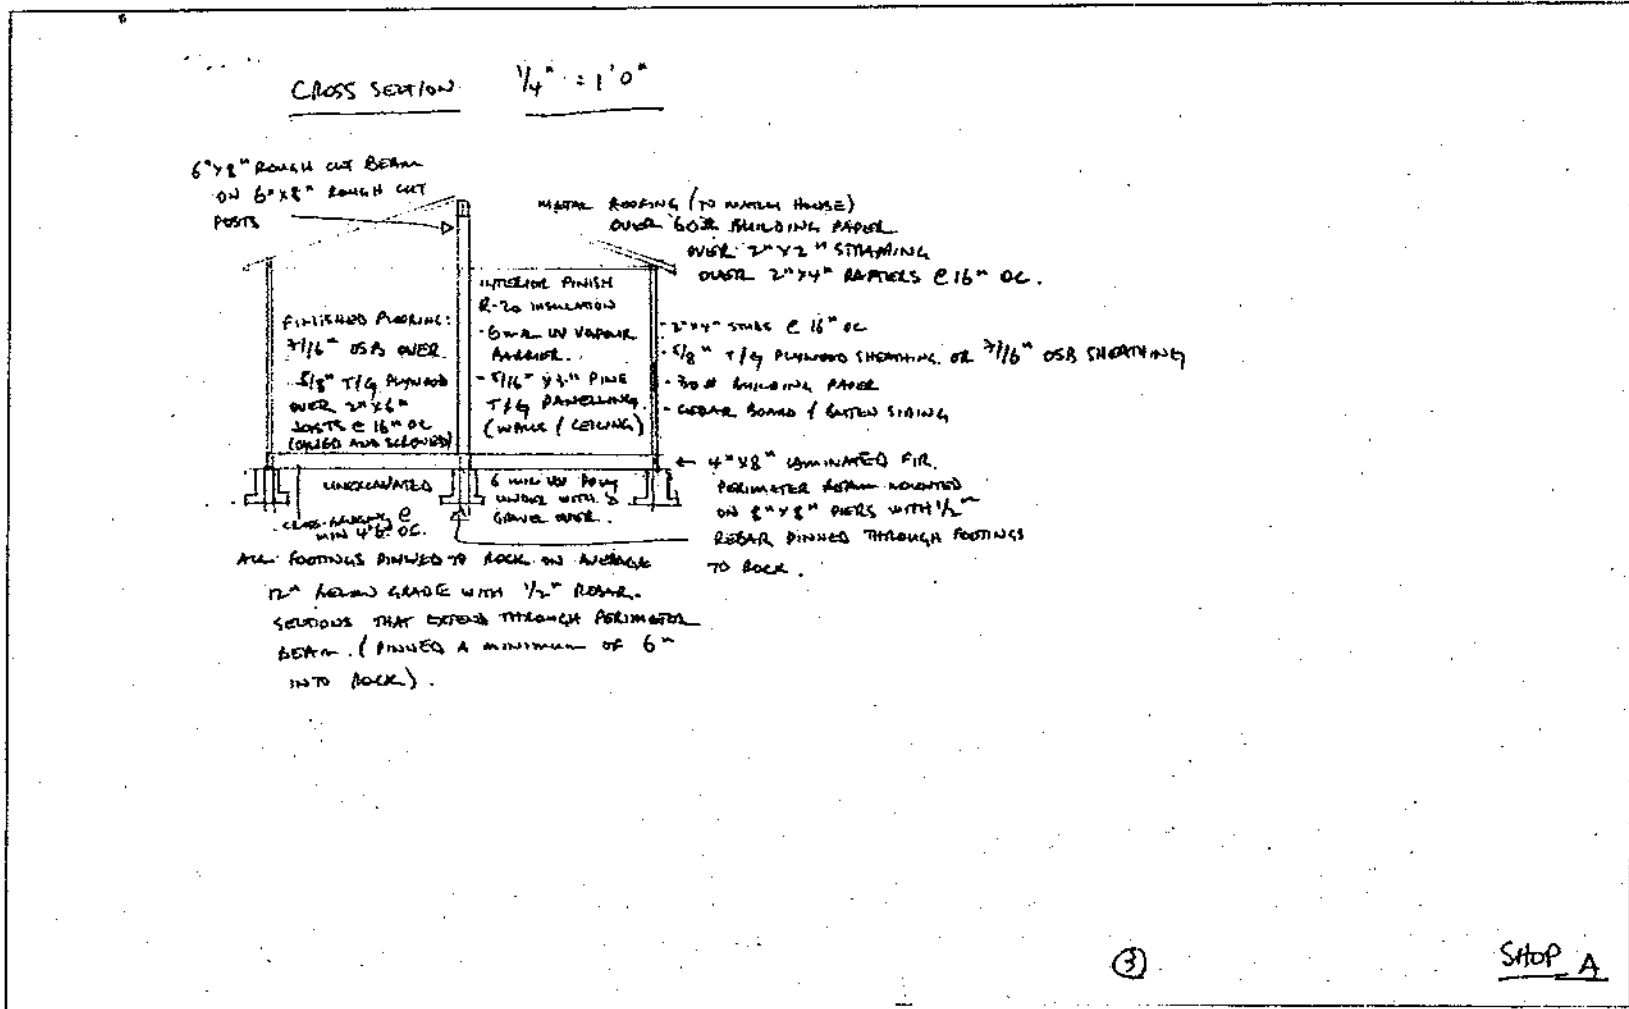 CROSS SECTION 1/4" = 1'0"
6"x8" ROUGH CUT BEAM
ON 6"x8" ROUGH CUT
POSTS
METAL ROOFING (TO MATCH HOUSE)
OVER 60# BUILDING PAPER
OVER 2"x2" STRAPPING
OVER 2"x4" RAFTERS @ 16" OC.
FINISHED FLOORING:
7/16" OSB OVER
5/8" T/G PLYWOOD
OVER 2"x6"
JOISTS @ 16" OC
(GLUED AND SCREWED)
INTERIOR FINISH
R-20 INSULATION
- 6 mil UV VAPOUR
BARRIER.
- 5/16" x 3" PINE
T/G PANELLING
(WALLS / CEILING)
- 2"x4" STUDS @ 16" OC
- 5/8" T/G PLYWOOD SHEATHING OR 7/16" OSB SHEATHING
- 30# BUILDING PAPER
- CEDAR BOARD & BATTEN SIDING
← 4"x8" LAMINATED FIR
PERIMETER BEAM MOUNTED
ON 8"x8" PIERS WITH 1/2"
REBAR PINNED THROUGH FOOTINGS
TO ROCK.
UNEXCAVATED
6 mil UV POLY
UNDER WITH
GRAVEL OVER.
CROSS-BRIDGING @
MIN 4'6" OC.
ALL FOOTINGS PINNED TO ROCK ON AVERAGE
12" BELOW GRADE WITH 1/2" REBAR.
SECTIONS THAT EXTEND THROUGH PERIMETER
BEAM. (PINNED A MINIMUM OF 6"
INTO ROCK).
3
SHOP A